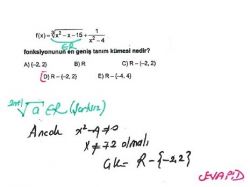 f(x)=∛x²−x−15 + 1/(x²−4)
∈R
fonksiyonunun en geniş tanım kümesi nedir?
A) {-2, 2} B) R C) R – (–2, 2)
D) R – {–2, 2} E) R – {–4, 4}
a ∈ R
Ancak x²−4≠0
x≠∓2 olmalı
GK= R−{−2,2}
CEVAP D